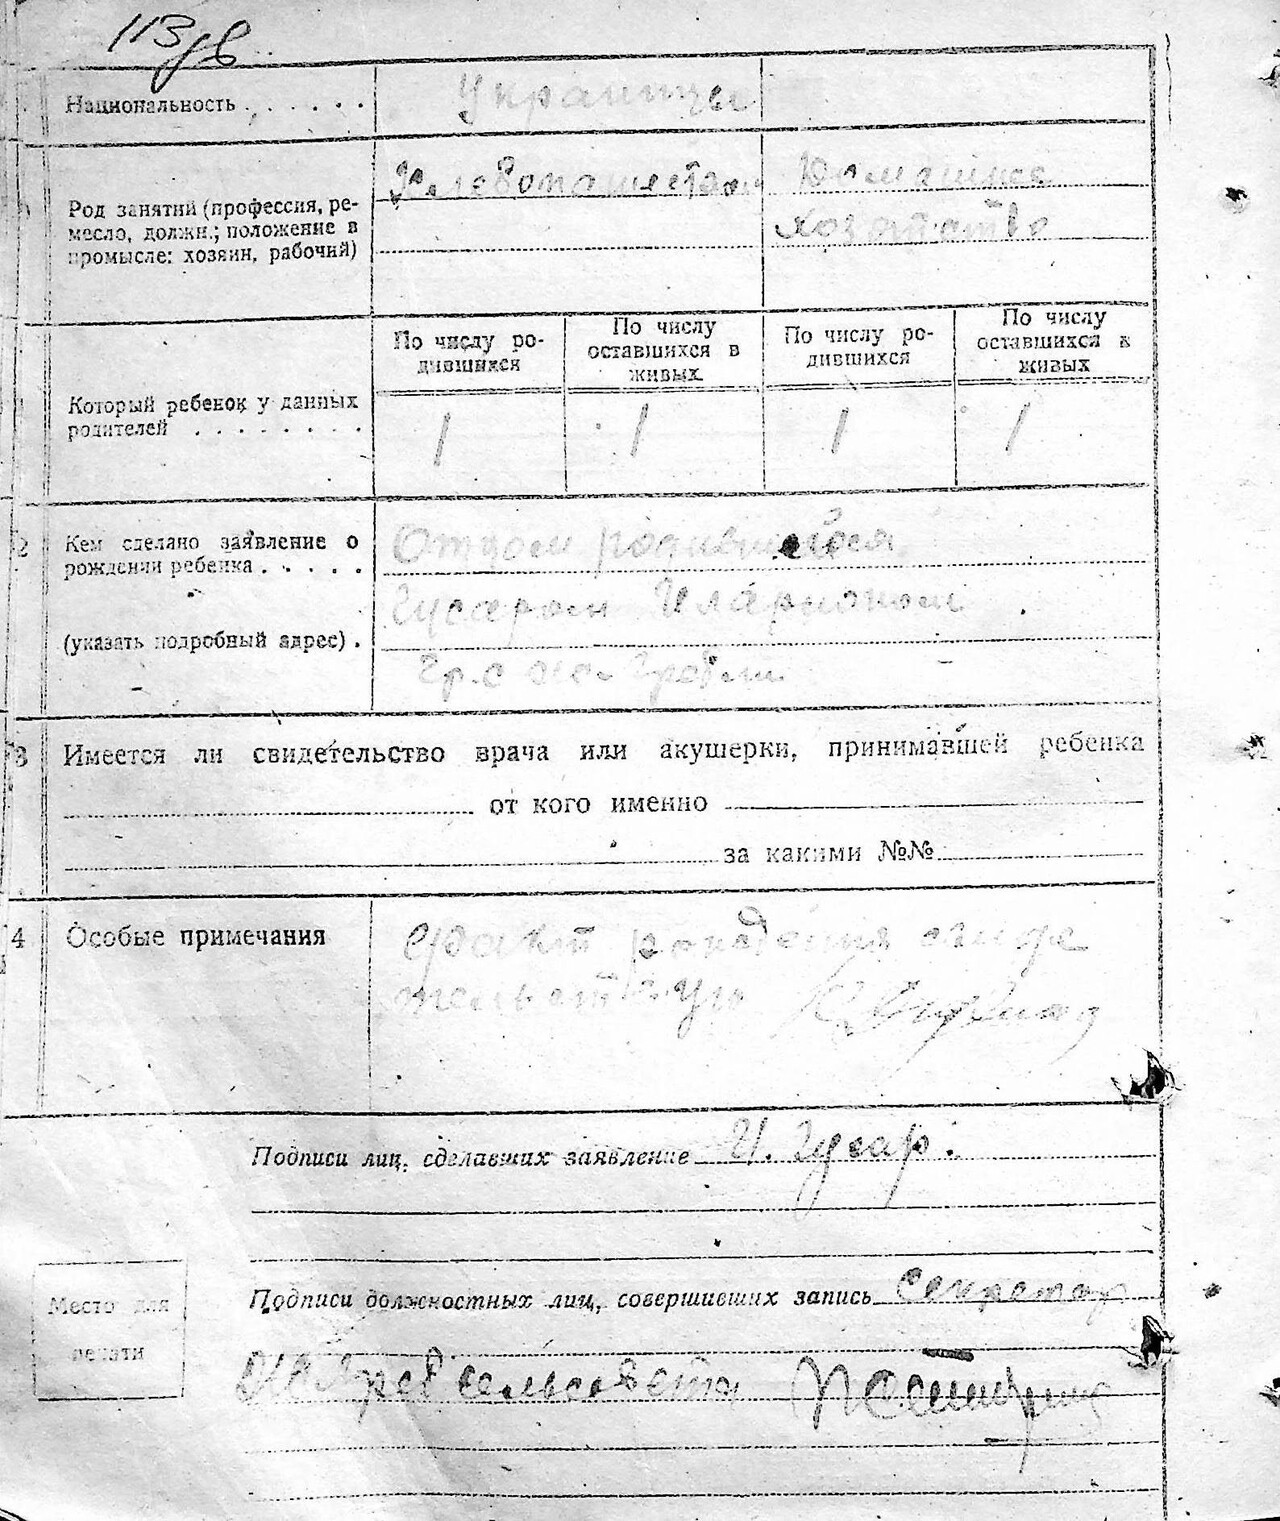 113
Национальность . . . . . . Украинцы
Род занятий (профессия, ре-
месло, должн.; положение в
промысле: хозяин, рабочий)
Хлебопашество
Домашнее
хозяйство
По числу ро-
дившихся
По числу
оставшихся в
живых
По числу ро-
дившихся
По числу
оставшихся в
живых
Который ребенок у данных
родителей . . . . . . . .
1 1 1 1
2 Кем сделано заявление о
рождении ребенка . . . . .
(указать подробный адрес) .
Отцом родившегося
Гусаром Иларионом
гр. с
3 Имеется ли свидетельство врача или акушерки, принимавшей ребенка
от кого именно
за какими №№
4 Особые примечания
Факт рождения свиде
тельствую
Подписи лиц, сделавших заявление И. Гусар.
Подписи должностных лиц, совершивших запись Секретар
сельсовета
Место для
печати